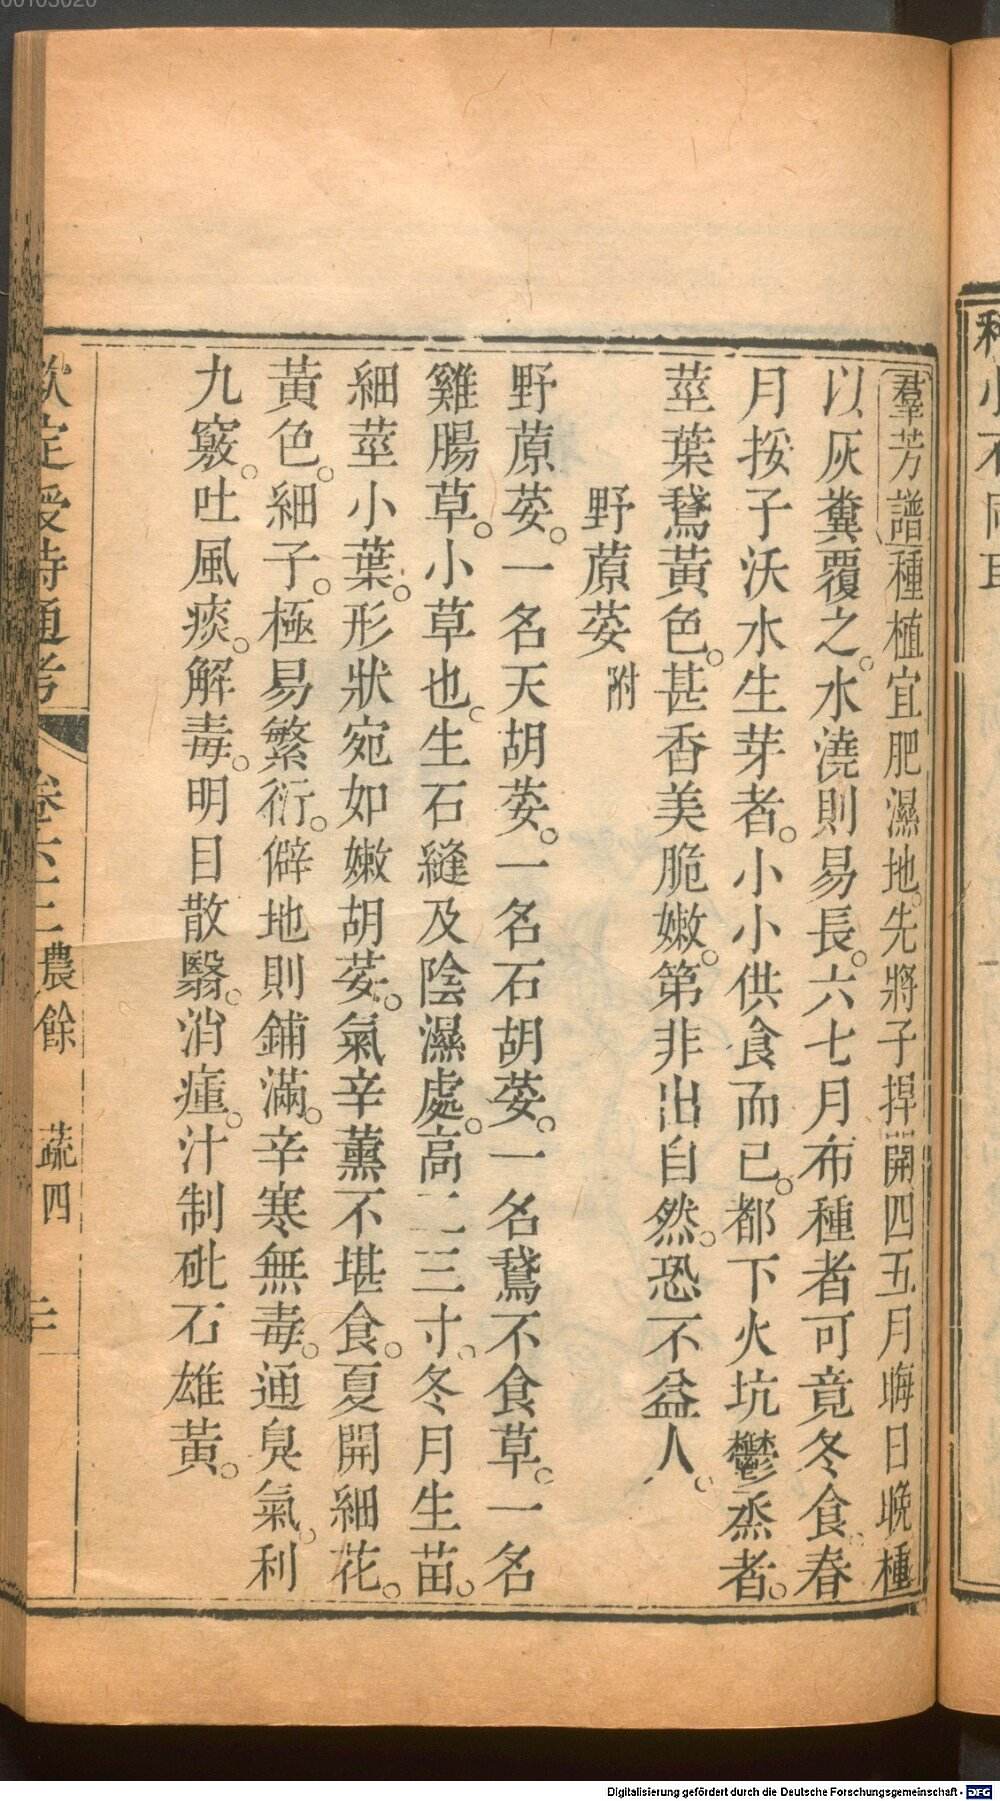 羣芳譜種植宜肥濕地。先將子捍開四五月晦日晚種
以灰糞覆之。水澆則易長。六七月布種者可竟冬食。春
月挼子沃水生芽者。小小供食而已。都下火坑鬱烝者。
莖葉鵞黃色。甚香美脆嫩。第非出自然。恐不益人。
野蒝荽附
野蒝荽。一名天胡荽。一名石胡荽。一名鵞不食草。一名
雞腸草。小草也。生石縫及陰濕處。高二三寸。冬月生苗。
細莖小葉。形狀宛如嫩胡荽。氣辛薰不堪食。夏開細花。
黃色。細子。極易繁衍。僻地則鋪滿。辛寒無毒。通臭氣。利
九竅。吐風痰。解毒。明目散翳。消瘇。汁制砒石雄黃。
欽定授時通考 卷六十二農餘 蔬四
Digitalisierung gefördert durch die Deutsche Forschungsgemeinschaft - DFG